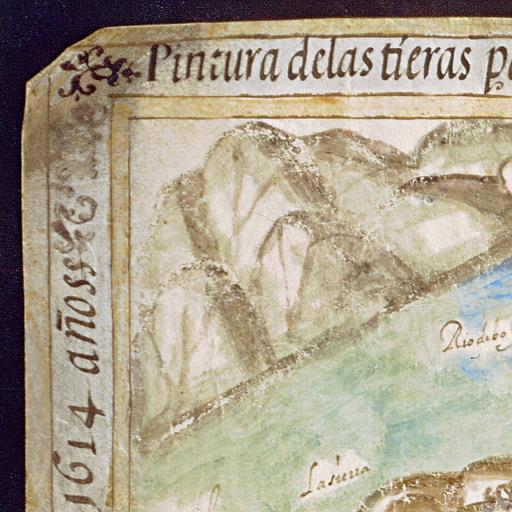 Pintura delas tieras
1614 años
Rio de bo
La sierra